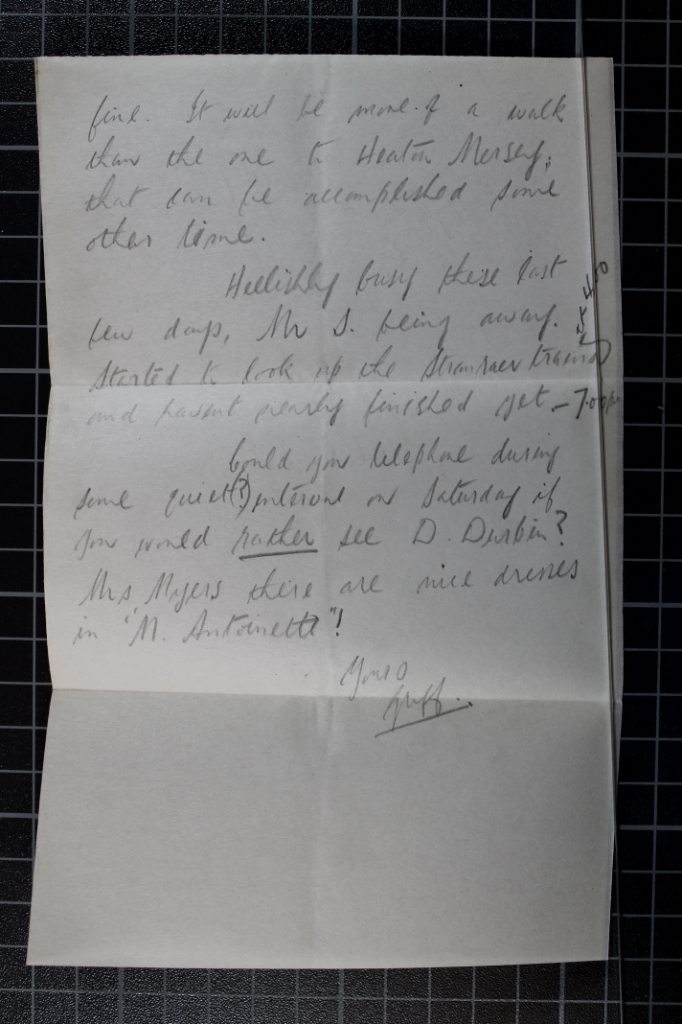 fine. It will be more of a walk
than the one to Heaton Mersey;
that can be accomplished some
other time.
Hellishly busy these last
few days, Mr S. being away.
Started to look up the Stranraer trains
and havent nearly finished yet – 7.0 pm
Could you telephone during
some quiet(?) interval on Saturday if
you would rather see D. Durbin?
Mrs Myers there are nice dresses
in "M. Antoinette"!
Yours
Griff.